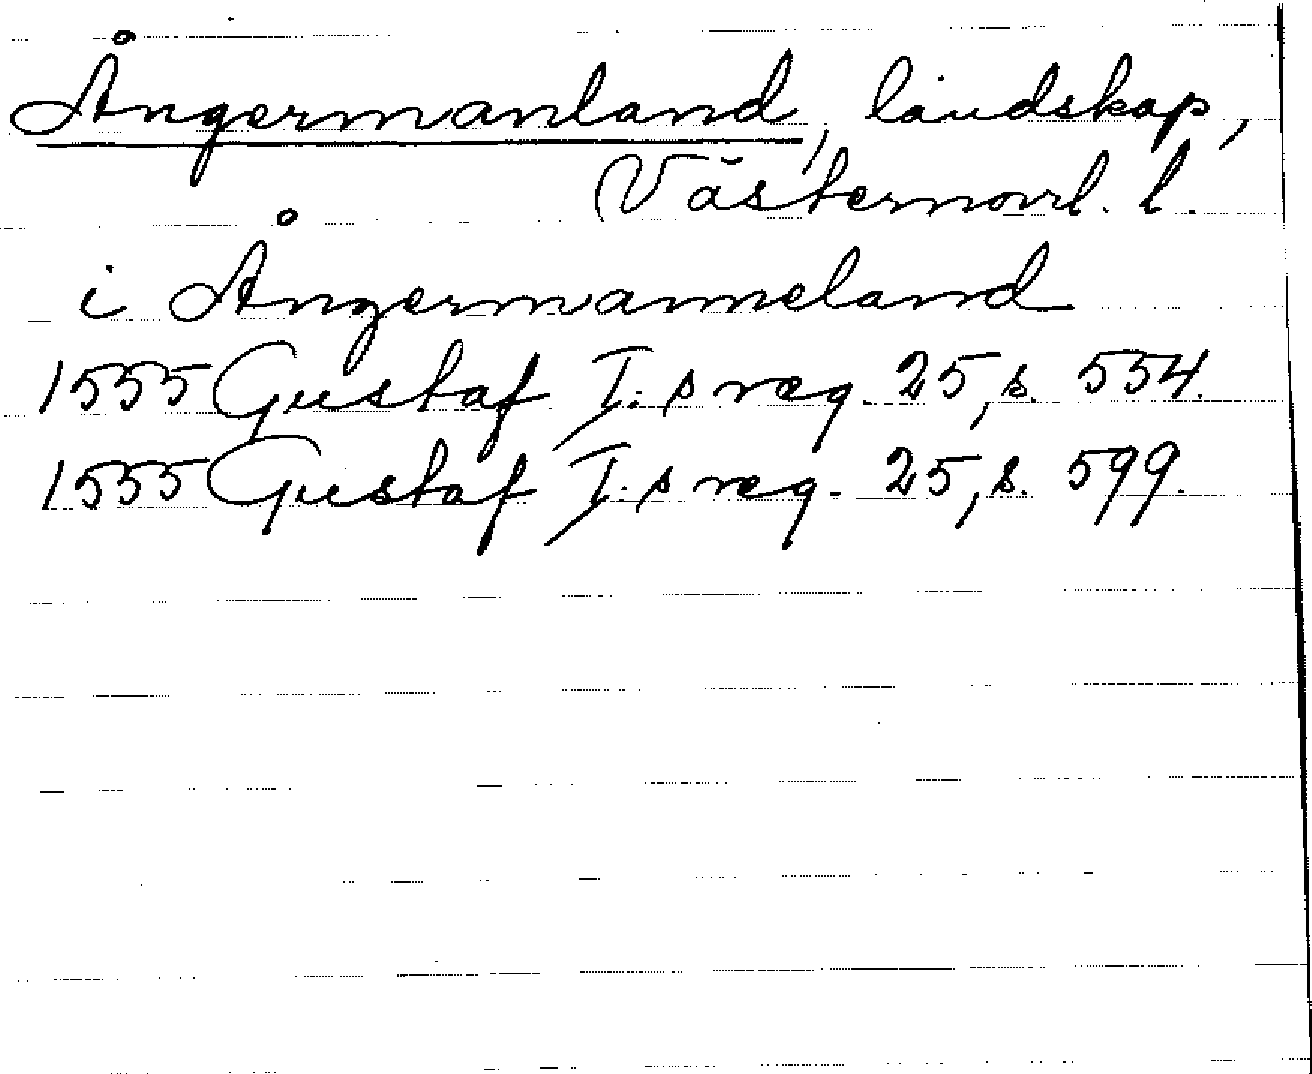 Ångermanland, landskap,
Västernorrl. l.
i Ångermanneland
1555 Gustaf I:s reg. 25, s. 554.
1555 Gustaf I:s reg. 25, s. 599.